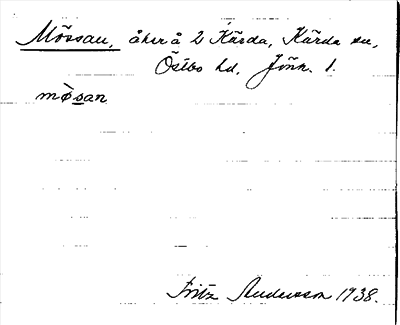 Mössan, åker å 2 Kärda, Kärda sn,
Östbo hd, Jönk. l.
mø̀san
Fritz Andersson 1938.